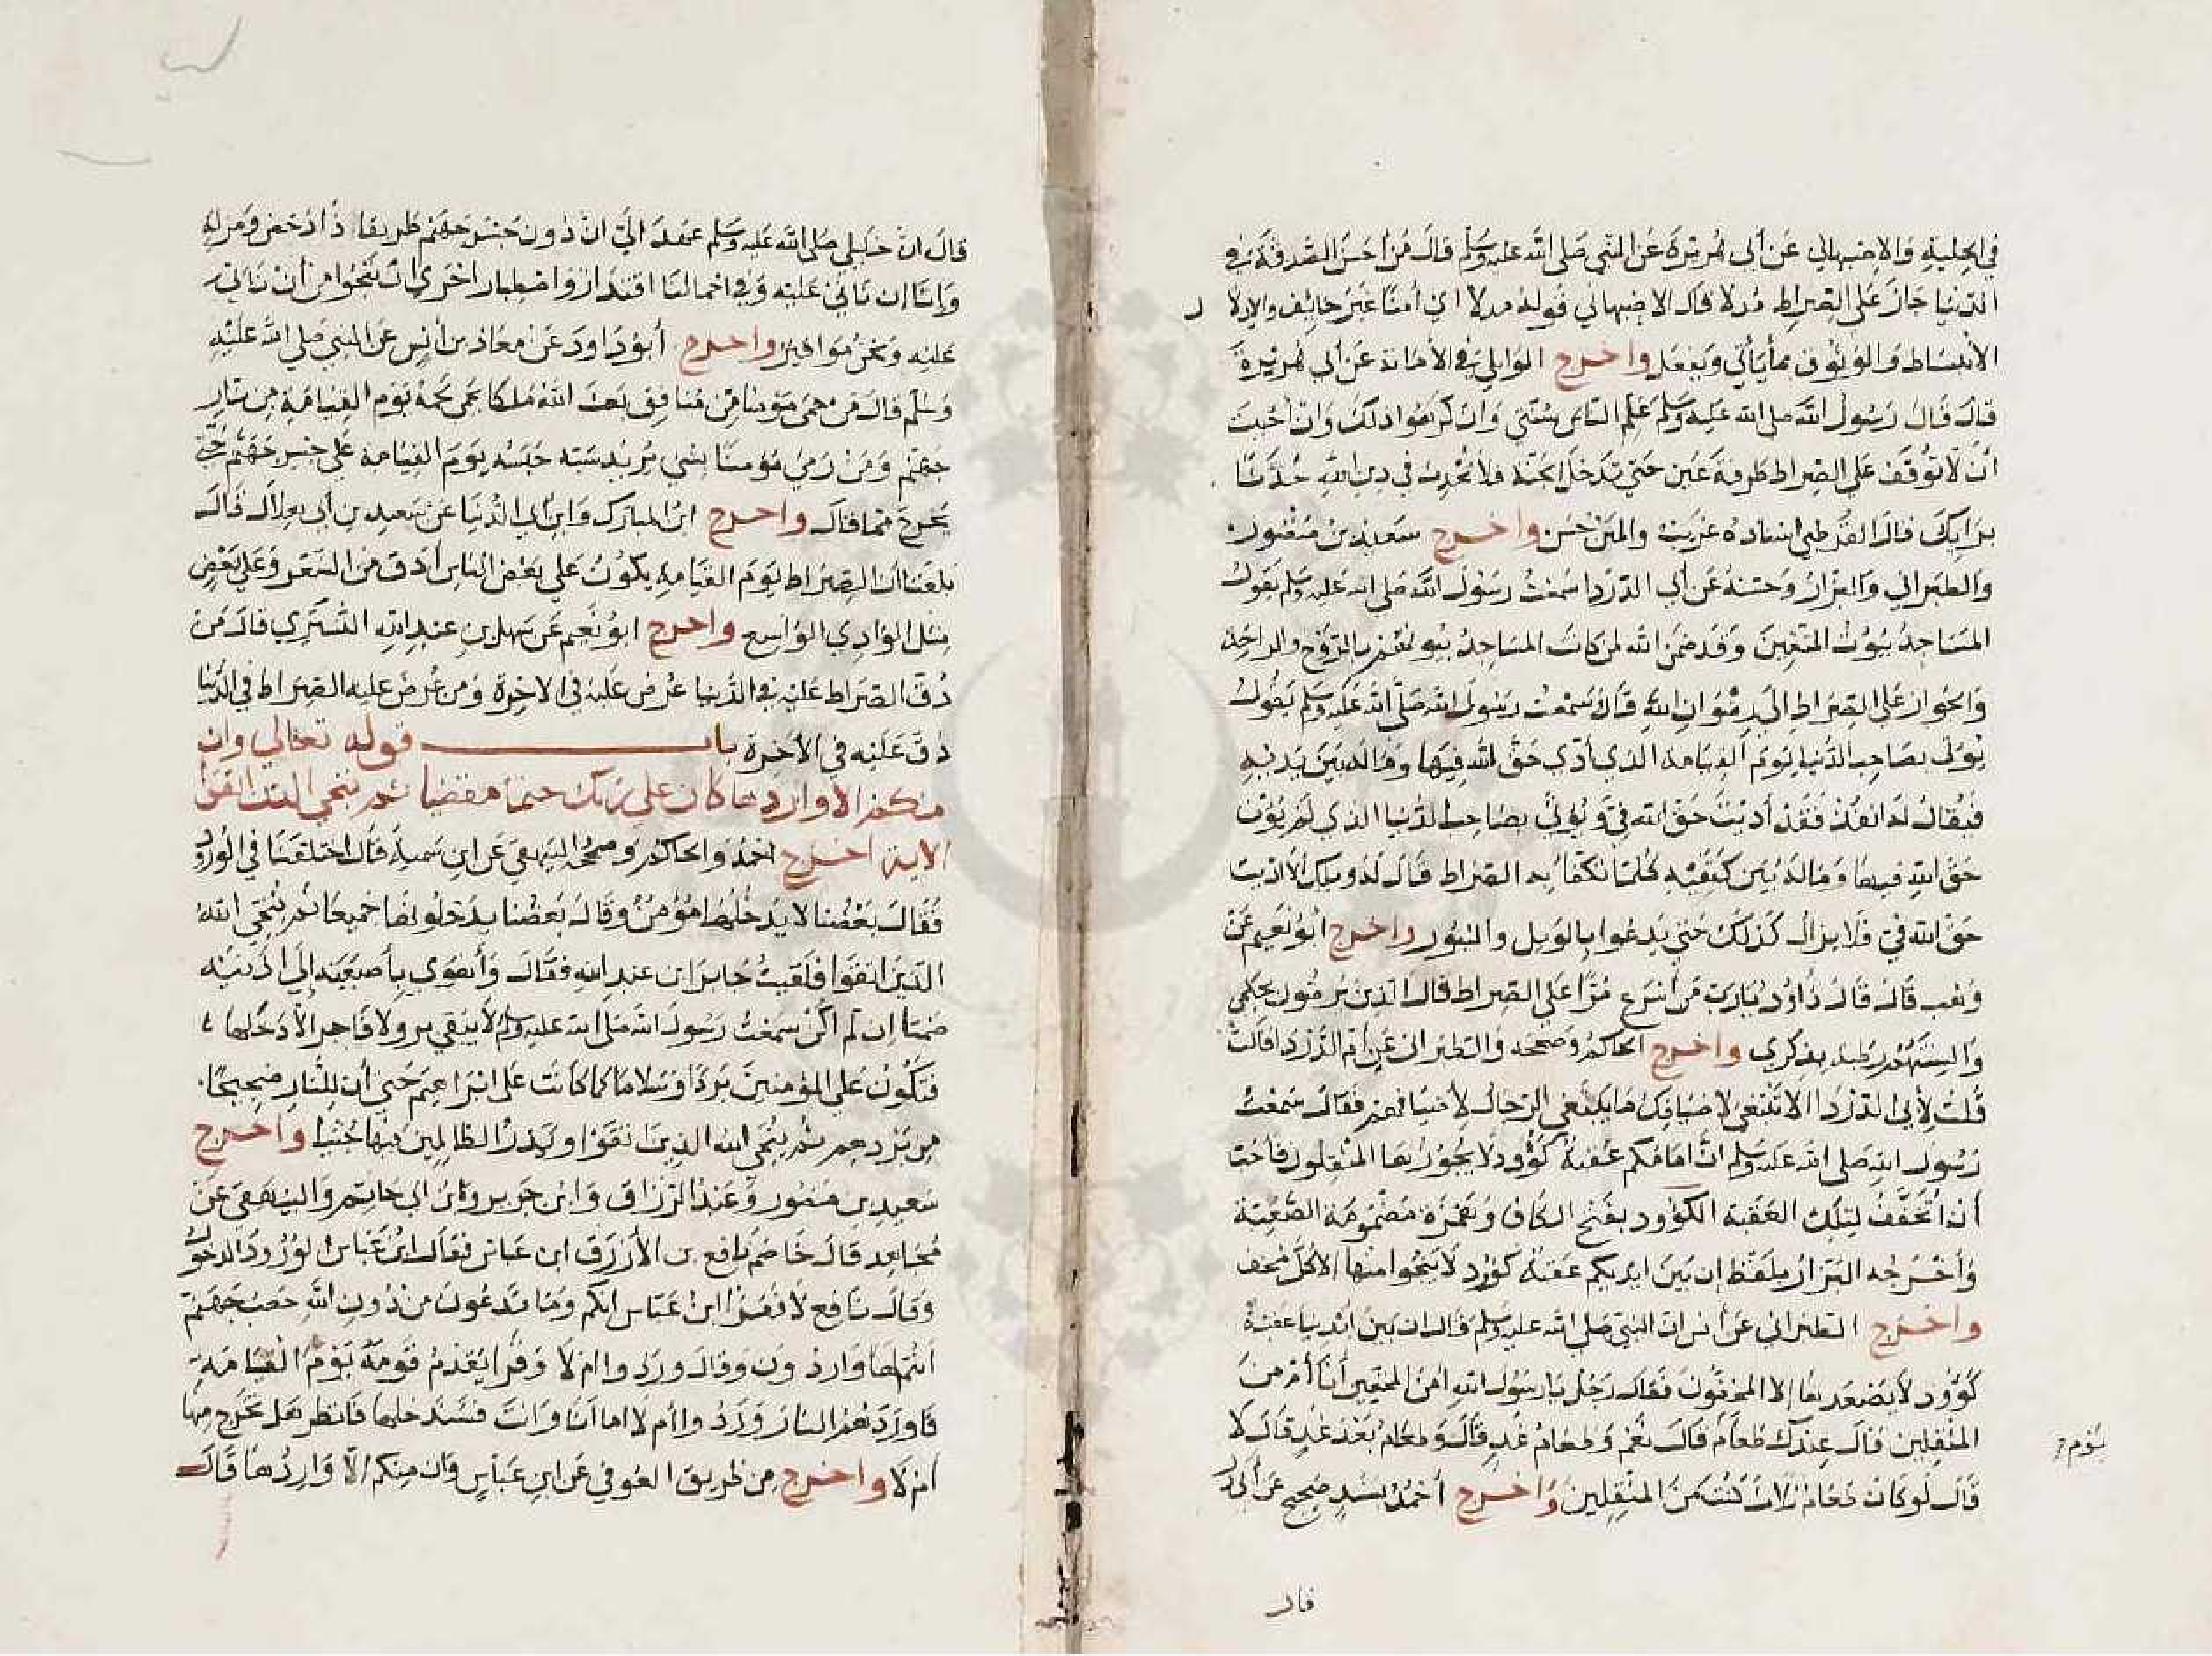 في الحلية والاصبهاني عن أبي هريرة عن النبي صلى الله عليه وسلم قال من أحسن الصدقة في
الدنيا جاز على الصراط مدلا قال الاصبهاني قوله مدلا اي أمنا غير خائف والادلال
الانبساط والوثوق بما يأتي ويفعل واخرج الوايلي في الأمانة عن أبي هريرة
قال قال رسول الله صلى الله عليه وسلم علم الناس سنتي وان كرهوا ذلك وان أحببت
أن لا توقف على الصراط طرفة عين حتى تدخل الجنة فلا تحدث في دين الله حدثا
برايك قال القرطبي اسناده غريب والمتن حسن واخرج سعيد بن منصور
والطبراني والبزار وحسنه عن أبي الدردا سمعت رسول الله صلى الله عليه وسلم يقول
المساجد بيوت المتقين وقد ضمن الله لمن كانت المساجد بيوتهم بالروح والراحة
والجواز على الصراط الى رضوان الله قال سمعت رسول الله صلى الله عليه وسلم يقول
يوتى بصاحب الدنيا يوم القيامة الذي أدى حق الله فيها وماله بين يديه
فيقال له انفذ فقد أديت حق الله في ويؤتى بصاحب الدنيا الذي لم يؤت
حق الله فيها وماله بين كتفيه كلما تكفا به الصراط قال له ويلك الا اديت
حق الله في فلا يزال كذلك حتى يدعوا بالويل والثبور واخرج أبو نعيم عن
وهب قال قال داود يا رب من أسرع مرا على الصراط قال الذين يرضون بحكمي
والسنتهم رطبة بذكري واخرج الحاكم وصححه والطبراني عن أم الدردا قالت
قلت لأبي الدردا الا تبتغي لاضيافك ما يبتغي الرجال لأضيافهم فقال سمعت
رسول الله صلى الله عليه وسلم ان أمامكم عقبة كؤود لا يجوز بها المثقلون فأحب
أن أتخفف لتلك العقبة الكؤود بفتح الكاف وهمزة مضمومة الصعبة
وأخرجه البزار بلفظ ان بين ايديكم عقبة كؤود لا ينجوا منها الا كل مخف
واخرج الطبراني عن أنس ان النبي صلى الله عليه وسلم قال ان بين أيدينا عقبة
كؤود لا يصعد بها إلا المخفون فقال رجل يا رسول الله امن المخفين أنا أم من
المثقلين قال عندك طعام قال نعم وطعام غد قال وطعام بعد غد قال لا
يوم
قال لو كان طعام ثلاث كنت من المثقلين واخرج أحمد بسند صحيح عن أبي
قال
قال ان خليلي صلى الله عليه وسلم عهد الي ان دون جسر جهنم طريقا ذا دحض ومزلة
وانا إن ناتي عليه وفي احمالنا اقتدار واضطبار اخرى ان ننجوا من أن ناتي
عليه ونحن مواقير واخرج أبو داود عن معاذ بن أنس عن النبي صلى الله عليه
وسلم قال من حمى مومنا من منافق بعث الله ملكا يحمي لحمه يوم القيامة من نار
جهنم ومن رمى مؤمنا بشي يريد سبه حبسه يوم القيامة على جسر جهنم حتى
يخرج مما قال واخرج ابن المبارك وابن ابي الدنيا عن سعيد بن أبي هلال قال
بلغنا ان الصراط يوم القيامة يكون على بعض الناس أدق من الشعر وعلى بعض
مثل الوادي الواسع واخرج ابو نعيم عن سهل بن عبد الله التستري قال من
دق الصراط عليه في الدنيا عرض عليه في الاخرة ومن عرض عليه الصراط في الدنيا
دق عليه في الآخرة باب قوله تعالى وان
منكم الا واردها كان على ربك حتما مقضيا ثم ننجي الذين اتقوا
الاية اخرج أحمد والحاكم وصححه البيهقي عن ابن سمية قال اختلفنا في الورود
فقال بعضنا لا يدخلها مؤمن وقال بعضنا يدخلونها جميعا ثم ينجي الله
الذين اتقوا فلقيت جابر ابن عبد الله فقال وأهوى بأصبعيه إلى أذنيه
صمتا إن لم أكن سمعت رسول الله صلى الله عليه وسلم لا يبقى بر ولا فاجر الا دخلها
فتكون على المؤمنين بردا وسلاما كما كانت على ابراهيم حتى أن للنار ضجيجا
من بردهم ثم ينجي الله الذين اتقوا ويذر الظالمين فيها جثيا واخرج
سعيد بن منصور وعبد الرزاق وابن جرير وابن ابي حاتم والبيهقي عن
مجاهد قال خاصم نافع بن الأزرق ابن عباس فقال ابن عباس الورود الدخول
وقال نافع لا فقرأ ابن عباس انكم وما تدعون من دون الله حصب جهنم
انتم لها واردون وقال وردوا ام لا وقرا يقدم قومه يوم القيامة
فاوردهم النار وردوا أم لا اما أنا وانت فسندخلها فانظر هل نخرج منها
ام لا واخرج من طريق العوفي عن ابن عباس وان منكم الا واردها قال